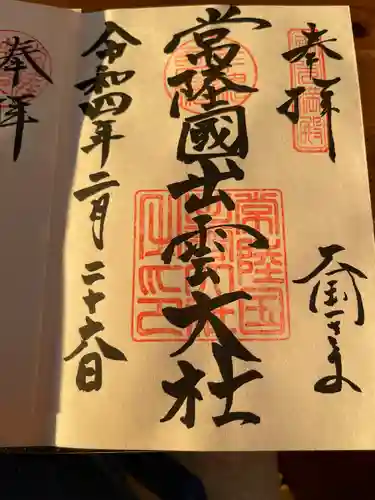 奉拝
大国さま
常陸國出雲大社
常陸国
令和四年二月二十六日
奉拝